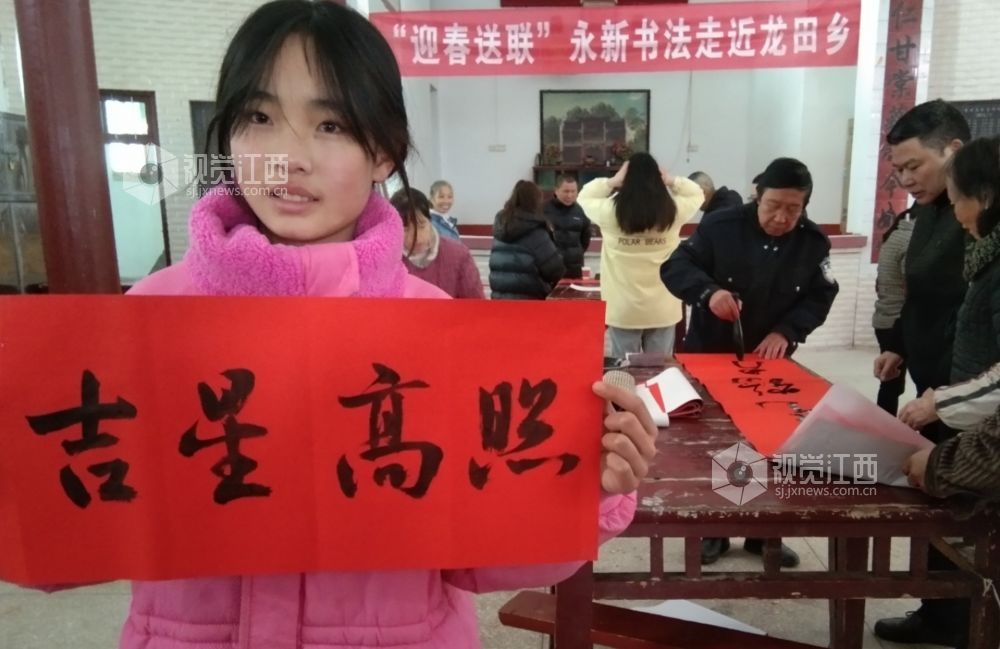 “迎春送联” 永新书法走近龙田乡
视觉江西
sj.jxnews.com.cn
POLAR BEARS
吉星高照
视觉江西
sj.jxnews.com.cn